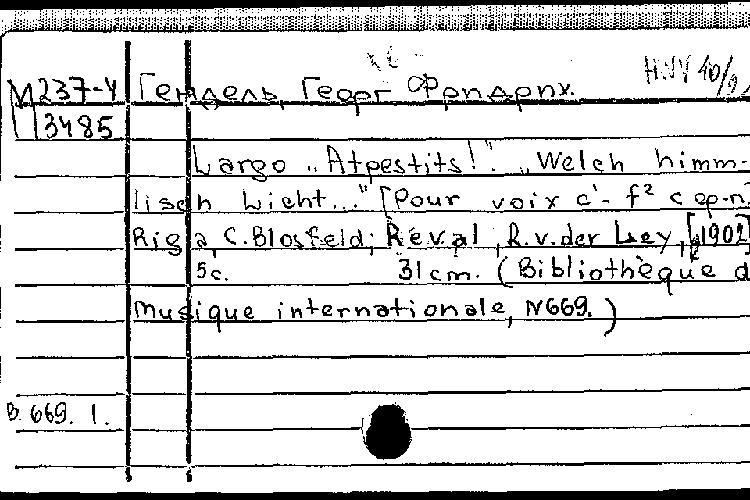 М237-4 Гендель, Георг Фридрих. H.VV 40/9
3485
Largo „Atpestits!". „Welch himm-
lisch Licht..." [Pour voix c¹- f² c ор-п.
Riga, C. Blosfeld; Reval, R.v.der Ley, [1902]
5c. 31cm. (Bibliothèque d
musique internationale, N669.)
B. 669. 1.